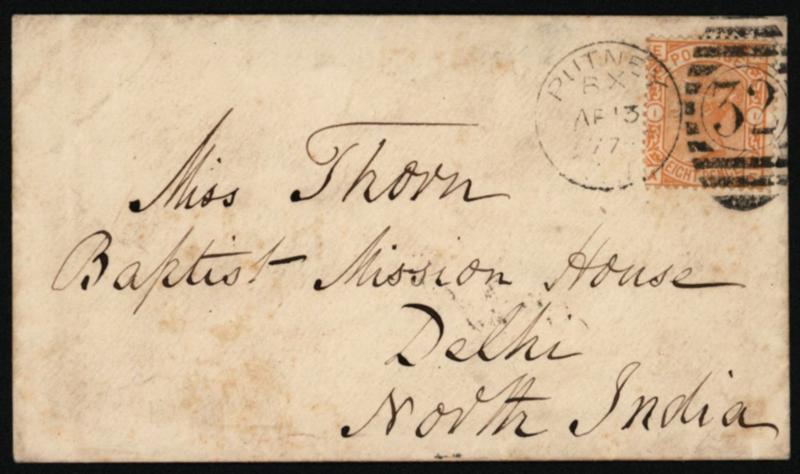 PUTNEY
BX
AP 13
77
32
E PO
EIGHT
Miss Thorn
Baptist Mission House
Delhi
North India